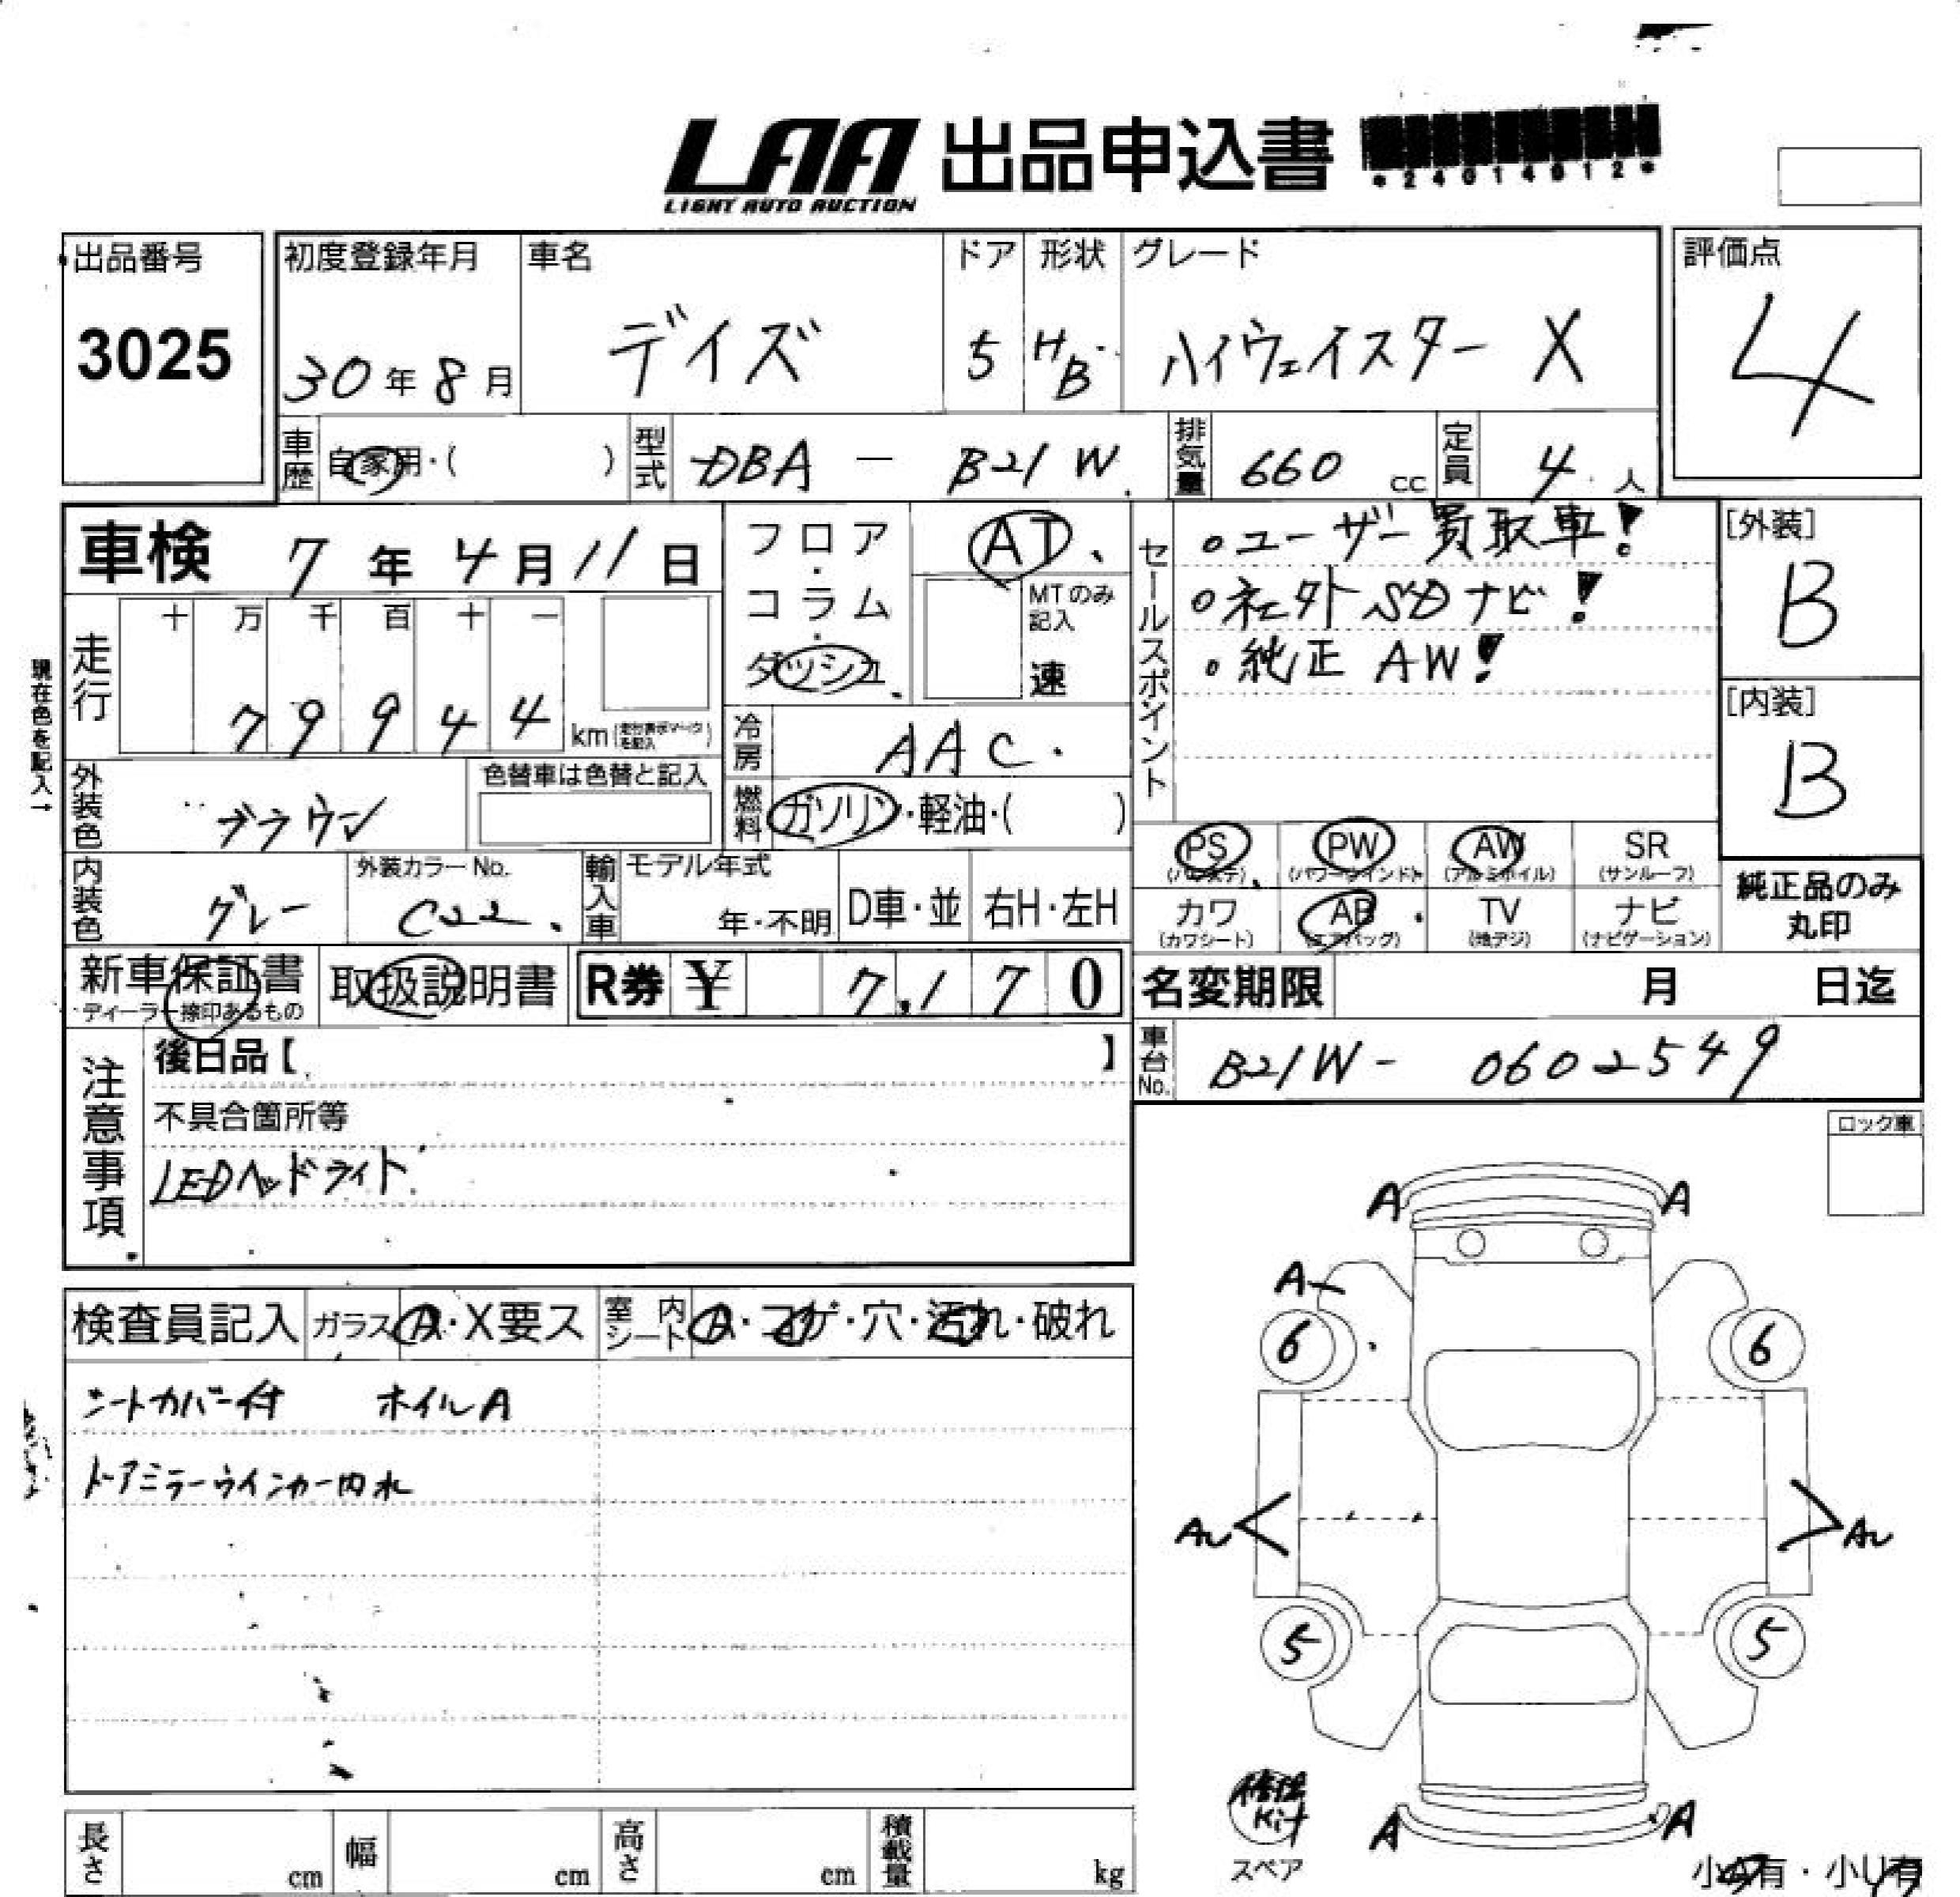 LAA 出品申込書
LIGHT AUTO AUCTION
*24014012*
出品番号
3025
初度登録年月
30年8月
車名
デイズ
ドア
5
形状
HB
グレード
ハイウェイスター X
評価点
4
車歴 自家用・( )
型式 DBA - B21W
排気量 660 cc
定員 4人
車検 7年4月11日
フロア・コラム・ダッシュ
AT
MTのみ記入
速
セールスポイント
○ユーザー買取車!
○社外SDナビ!
○純正AW!
[外装]
B
[内装]
B
現在色を記入→
走行
十 万 千 百 十 一
7 9 9 4 4 km
冷房 AAC
外装色 ブラウン
色替車は色替と記入
燃料 ガソリン・軽油・( )
PS (パワステ)
PW (パワーウインド)
AW (アルミホイル)
SR (サンルーフ)
カワ (カワシート)
AB (エアバッグ)
TV (地デジ)
ナビ (ナビゲーション)
純正品のみ丸印
内装色 グレー
外装カラーNo.
C22
輸入車 モデル年式
年・不明
D車・並
右H・左H
新車保証書
ディーラー捺印あるもの
取扱説明書
R券 ¥ 7,170
名変期限 月 日迄
車台No. B21W- 0602549
注意事項
後日品【 】
不具合箇所等
LEDヘッドライト
ロック車
検査員記入
ガラス A・X要ス
室内シート A・コゲ・穴・汚れ・破れ
シートカバー付 ホイルA
ドアミラーウインカー内水
A A
A
6 6
A A
5 5
修理Kit
スペア
A A
長さ cm
幅 cm
高さ cm
積載量 kg